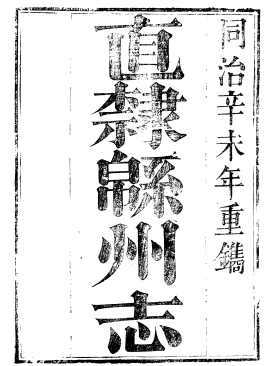 同治辛未年重鐫
直隸緜州志